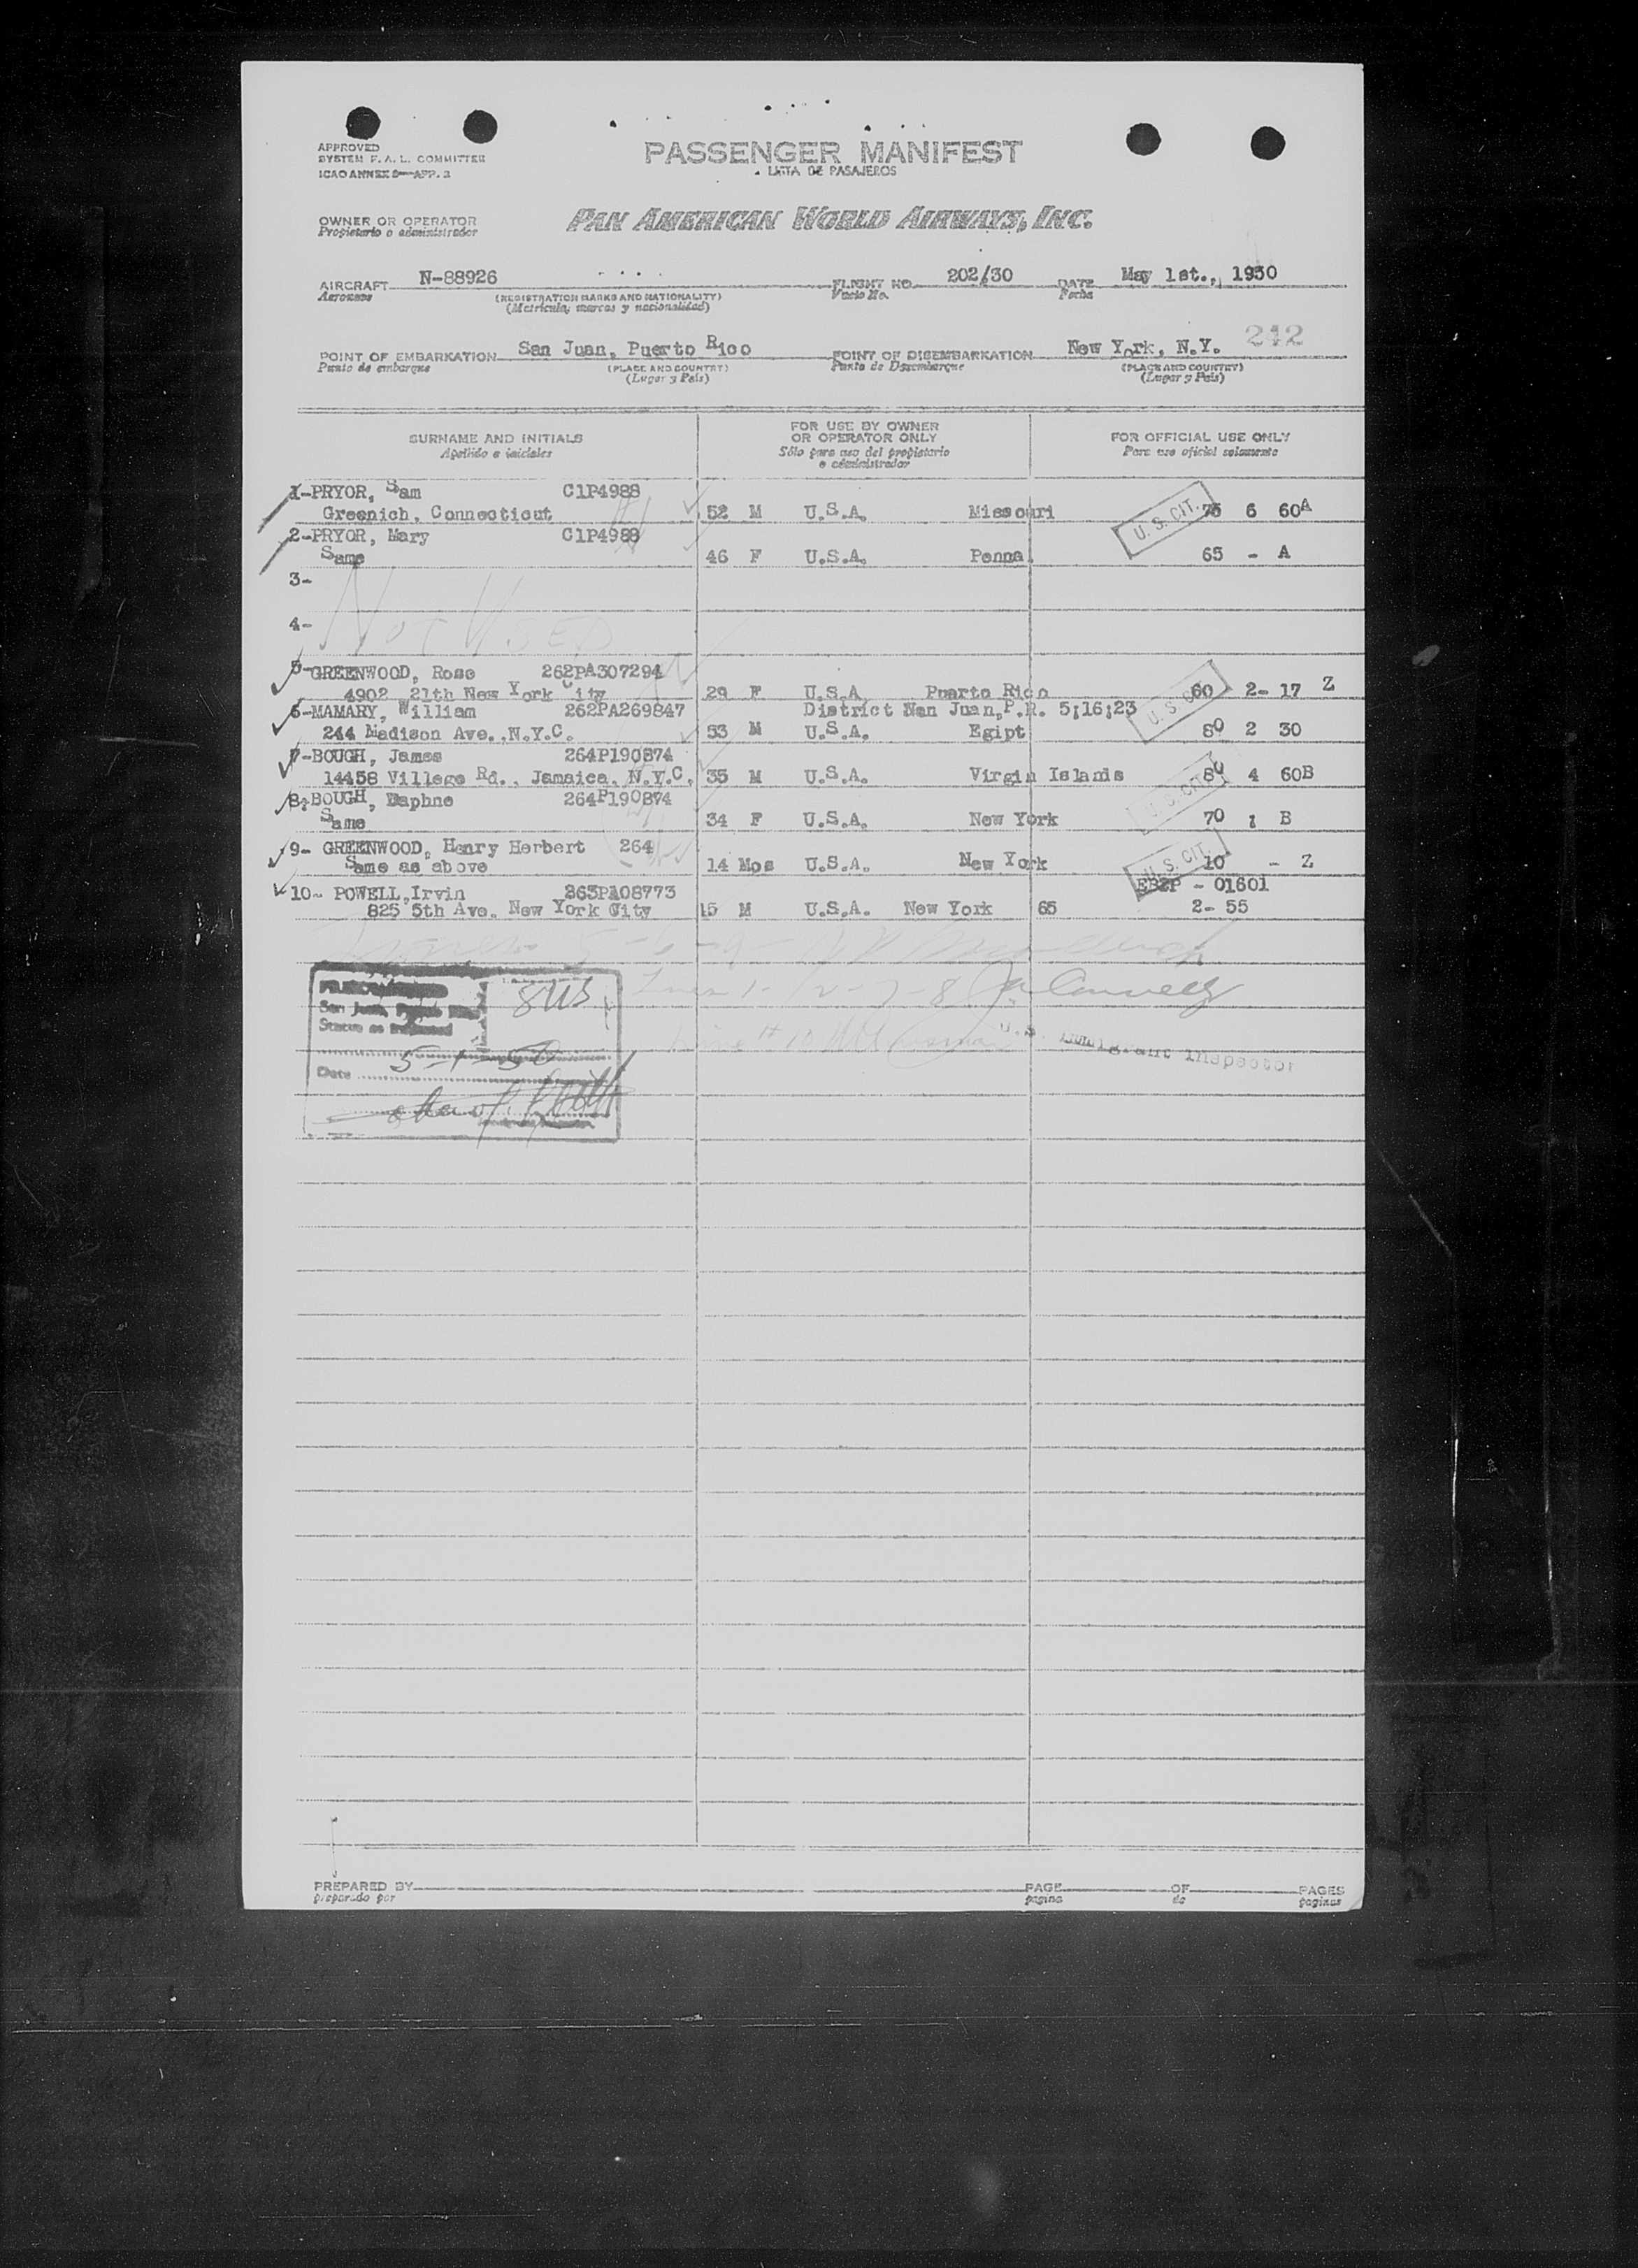 APPROVED
SYSTEM F. A. L. COMMITTEE
ICAO ANNEX 9—APP. 2
PASSENGER MANIFEST
LISTA DE PASAJEROS
OWNER OR OPERATOR
Propietario o administrador
PAN AMERICAN WORLD AIRWAYS, INC.
AIRCRAFT N-88926 FLIGHT NO. 202/30 DATE May 1st., 1950
Aeronave (REGISTRATION MARKS AND NATIONALITY) Vuelo No. Fecha
(Matrícula, marcas y nacionalidad)
242
POINT OF EMBARKATION San Juan, Puerto Rico POINT OF DISEMBARKATION New York, N.Y.
Punto de embarque (PLACE AND COUNTRY) Punto de Desembarque (PLACE AND COUNTRY)
(Lugar y País) (Lugar y País)
SURNAME AND INITIALS FOR USE BY OWNER OR OPERATOR ONLY FOR OFFICIAL USE ONLY
Apellido e iniciales Sólo para uso del propietario o administrador Para uso oficial solamente
1-PRYOR, Sam C1P4988
Greenich, Connecticut 52 M U.S.A. Missouri U. S. CIT. 75 6 60A
2-PRYOR, Mary C1P4988
Same 46 F U.S.A. Penna. 65 - A
3-
4- NOT USED
5-GREENWOOD, Rose 262PA307294
4902 21th New York City 29 F U.S.A. Puerto Rico U. S. CIT. 60 2- 17 Z
6-MAMARY, William 262PA269847 District Nan Juan,P.R. 5;16;23
244 Madison Ave.,N.Y.C. 53 M U.S.A. Egipt 80 2 30
7-BOUGH, James 264P190874
14458 Village Rd., Jamaica, N.Y.C. 35 M U.S.A. Virgin Islands U. S. CIT. 80 4 60B
8-BOUGH, Daphne 264P190874
Same 34 F U.S.A. New York 70 1 B
9- GREENWOOD, Henry Herbert 264
Same as above 14 Mos U.S.A. New York U. S. CIT. 10 - Z
10- POWELL,Irvin 263PA08773 - 01601
825 5th Ave. New York City 15 M U.S.A. New York 65 2- 55
San Juan, Puerto Rico
8US
Date 5-1-50
U.S. Immigrant Inspector
PREPARED BY PAGE OF PAGES
preparado por página de páginas